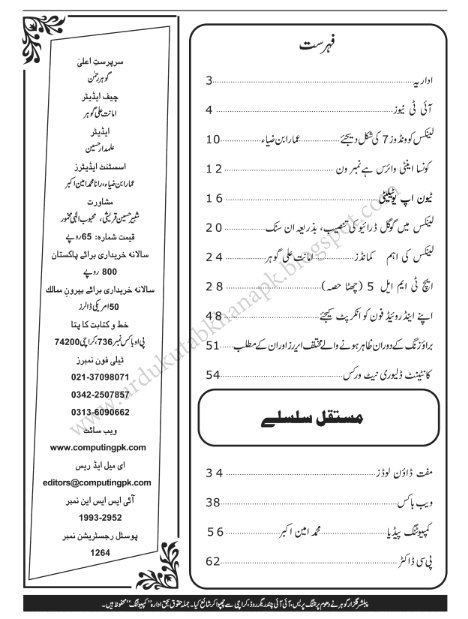 فہرست
اداریہ 3
آئی ٹی نیوز 4
لینکس کو ونڈوز 7 کی شکل دیجئے عمار ابن ضیاء 10
کونسا اینٹی وائرس ہے نمبر ون 12
ٹیون اپ یوٹیلٹی 16
لینکس میں گوگل ڈرائیو کی تنصیب، بذریعہ ان سنک 20
لینکس کی اہم کمانڈز امانت علی گوہر 24
ایچ ٹی ایم ایل 5 (چھٹا حصہ) 28
اپنے اینڈروئیڈ فون کو انکرپٹ کیجئے 48
براؤزنگ کے دوران ظاہر ہونے والے مختلف ایررز اور ان کے مطلب 51
کانٹینٹ ڈلیوری نیٹ ورکس 54
مستقل سلسلے
مفت ڈاؤن لوڈز 34
ویب باکس 38
کمپیوٹنگ پیڈیا محمد امین اکبر 56
پی سی ڈاکٹر 62
سرپرست اعلیٰ
گوہر رحمٰن
چیف ایڈیٹر
امانت علی گوہر
ایڈیٹر
علمدار حسین
اسسٹنٹ ایڈیٹرز
عمار ابن ضیاء، رانا محمد امین اکبر
مشاورت
شبیر حسین قریشی، محبوب الٰہی مخمور
قیمت شمارہ: 65 روپے
سالانہ خریداری برائے پاکستان
800 روپے
سالانہ خریداری برائے بیرون ممالک
50 امریکی ڈالرز
خط و کتابت کا پتا
پی او باکس نمبر 736، کراچی 74200
ٹیلی فون نمبرز
021-37098071
0342-2507857
0313-6090662
ویب سائٹ
www.computingpk.com
ای میل ایڈریس
editors@computingpk.com
آئی ایس ایس این نمبر
1993-2952
پوسٹل رجسٹریشن نمبر
1264
پبلشر گلزار گوہر نے دھوم پرنٹنگ پریس، آئی آئی چندریگر روڈ، کراچی سے چھپوا کر شائع کیا۔ جملہ حقوق بحق ادارہ "کمپیوٹنگ" محفوظ ہیں۔
www.urdukutabkhanapk.blogspot.com